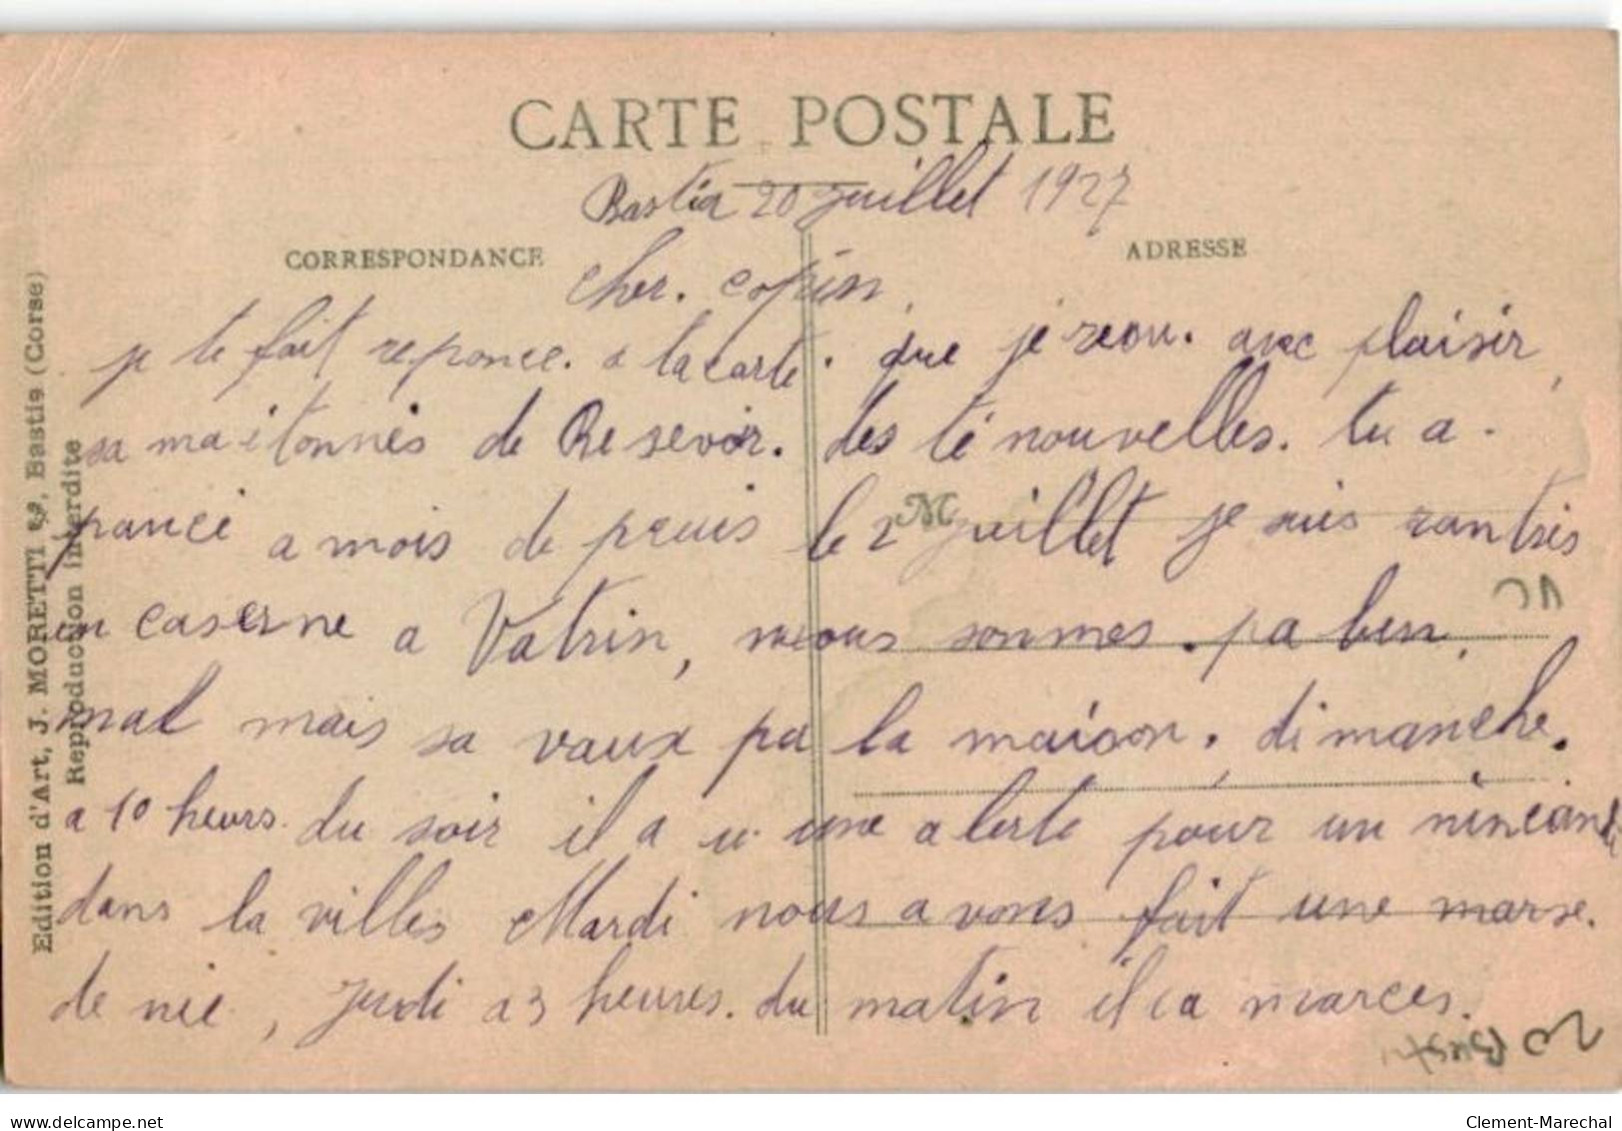 CARTE POSTALE
Bastia 20 juillet 1927
CORRESPONDANCE
ADRESSE
cher. copin,
je te fait reponce. a la carte. que je reou. avec plaisir,
sa ma etonnés de Resevoir. des té nouvelles. tu a.
pancé a mois de pruis le 2 juillet je suis rantris
en caserne a Vatrin, nous sonmes. pa bien,
mal mais sa vaux pa la maison. dimanche.
a 10 heurs. du soir il a u une alerte pour un ninciand
dans la villes Mardi nous avons fait une marse.
de nie, Jeudi a 3 heures. du matin il i a marces.
Edition d'Art, J. MORETTI, Bastia (Corse)
Reproduction interdite
delcampe.net
Clement-Marechal